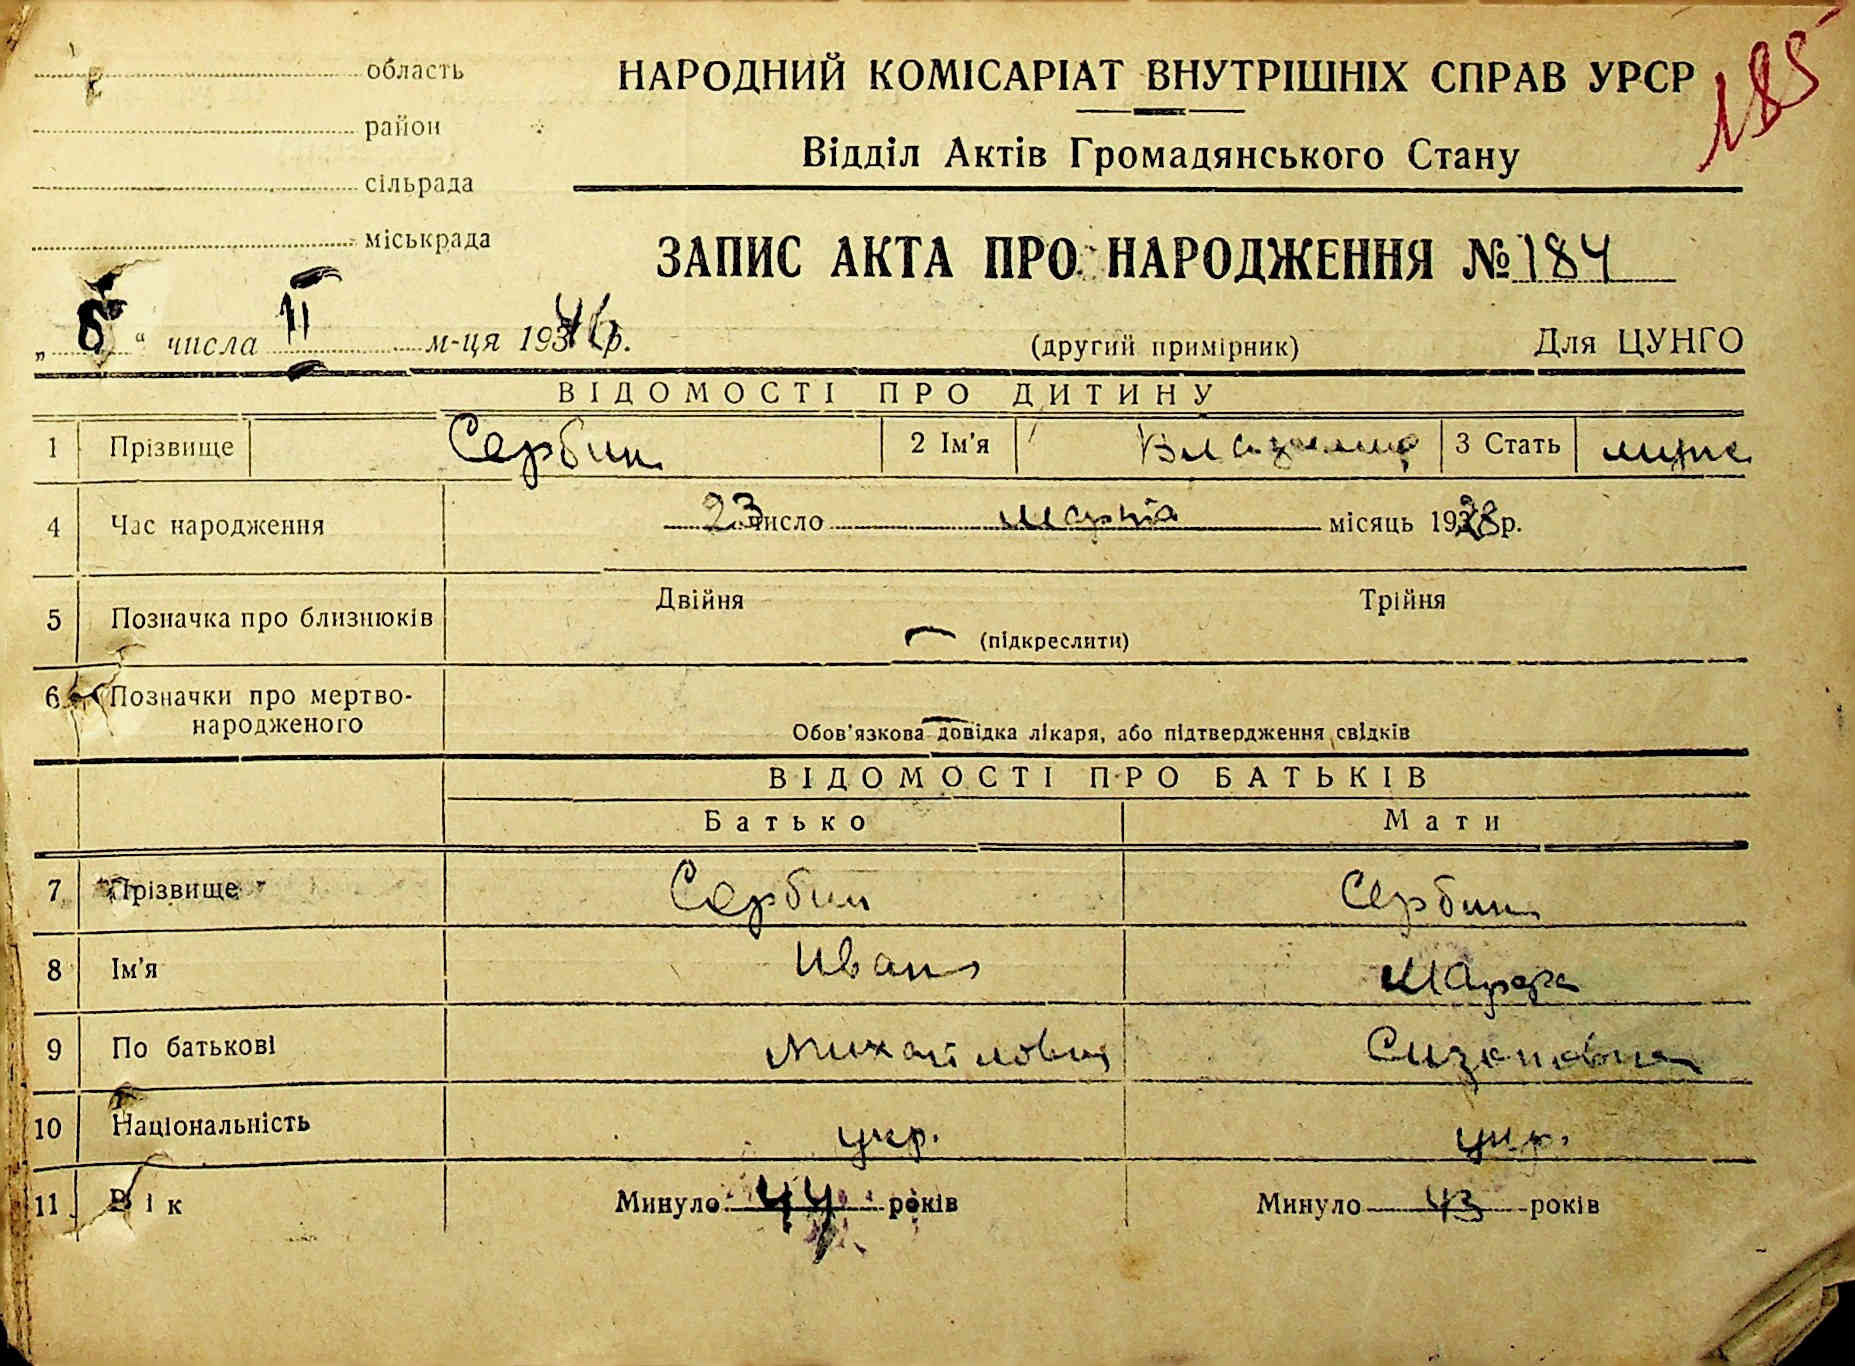 185
область
район
сільрада
міськрада
НАРОДНИЙ КОМІСАРІАТ ВНУТРІШНІХ СПРАВ УРСР
Відділ Актів Громадянського Стану
ЗАПИС АКТА ПРО НАРОДЖЕННЯ № 184
„ “ числа II м-ця 1946 р.
(другий примірник) Для ЦУНГО
ВІДОМОСТІ ПРО ДИТИНУ
1 Прізвище Сербин 2 Ім'я Владимир 3 Стать муж
4 Час народження 23 число марта місяць 1928 р.
5 Позначка про близнюків Двійня Трійня
(підкреслити)
6 Позначки про мертво-
народженого
Обов'язкова довідка лікаря, або підтвердження свідків
ВІДОМОСТІ ПРО БАТЬКІВ
Батько Мати
7 Прізвище Сербин Сербин
8 Ім'я Иван Марфа
9 По батькові Михайлович
10 Національність укр. укр.
11 Вік Минуло 44 років Минуло 43 років